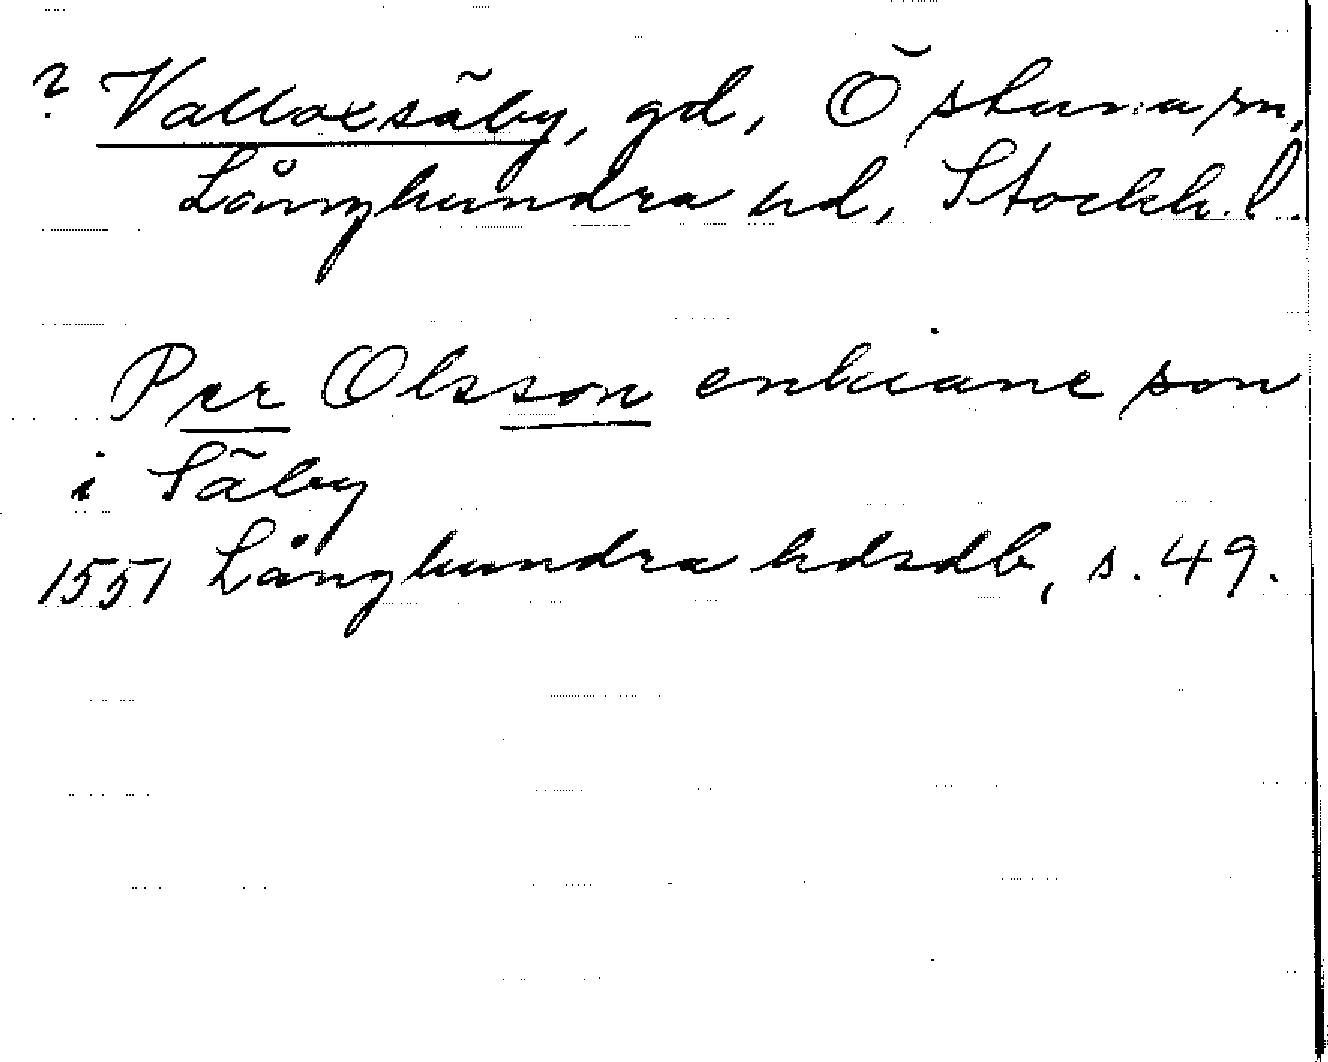 ? Valloxsäby, gd, Östuna sn,
Långhundra hd, Stockh. l.
Per Olsson enkiane son
i Säby
1551 Långhundra hdsdb, s. 49.